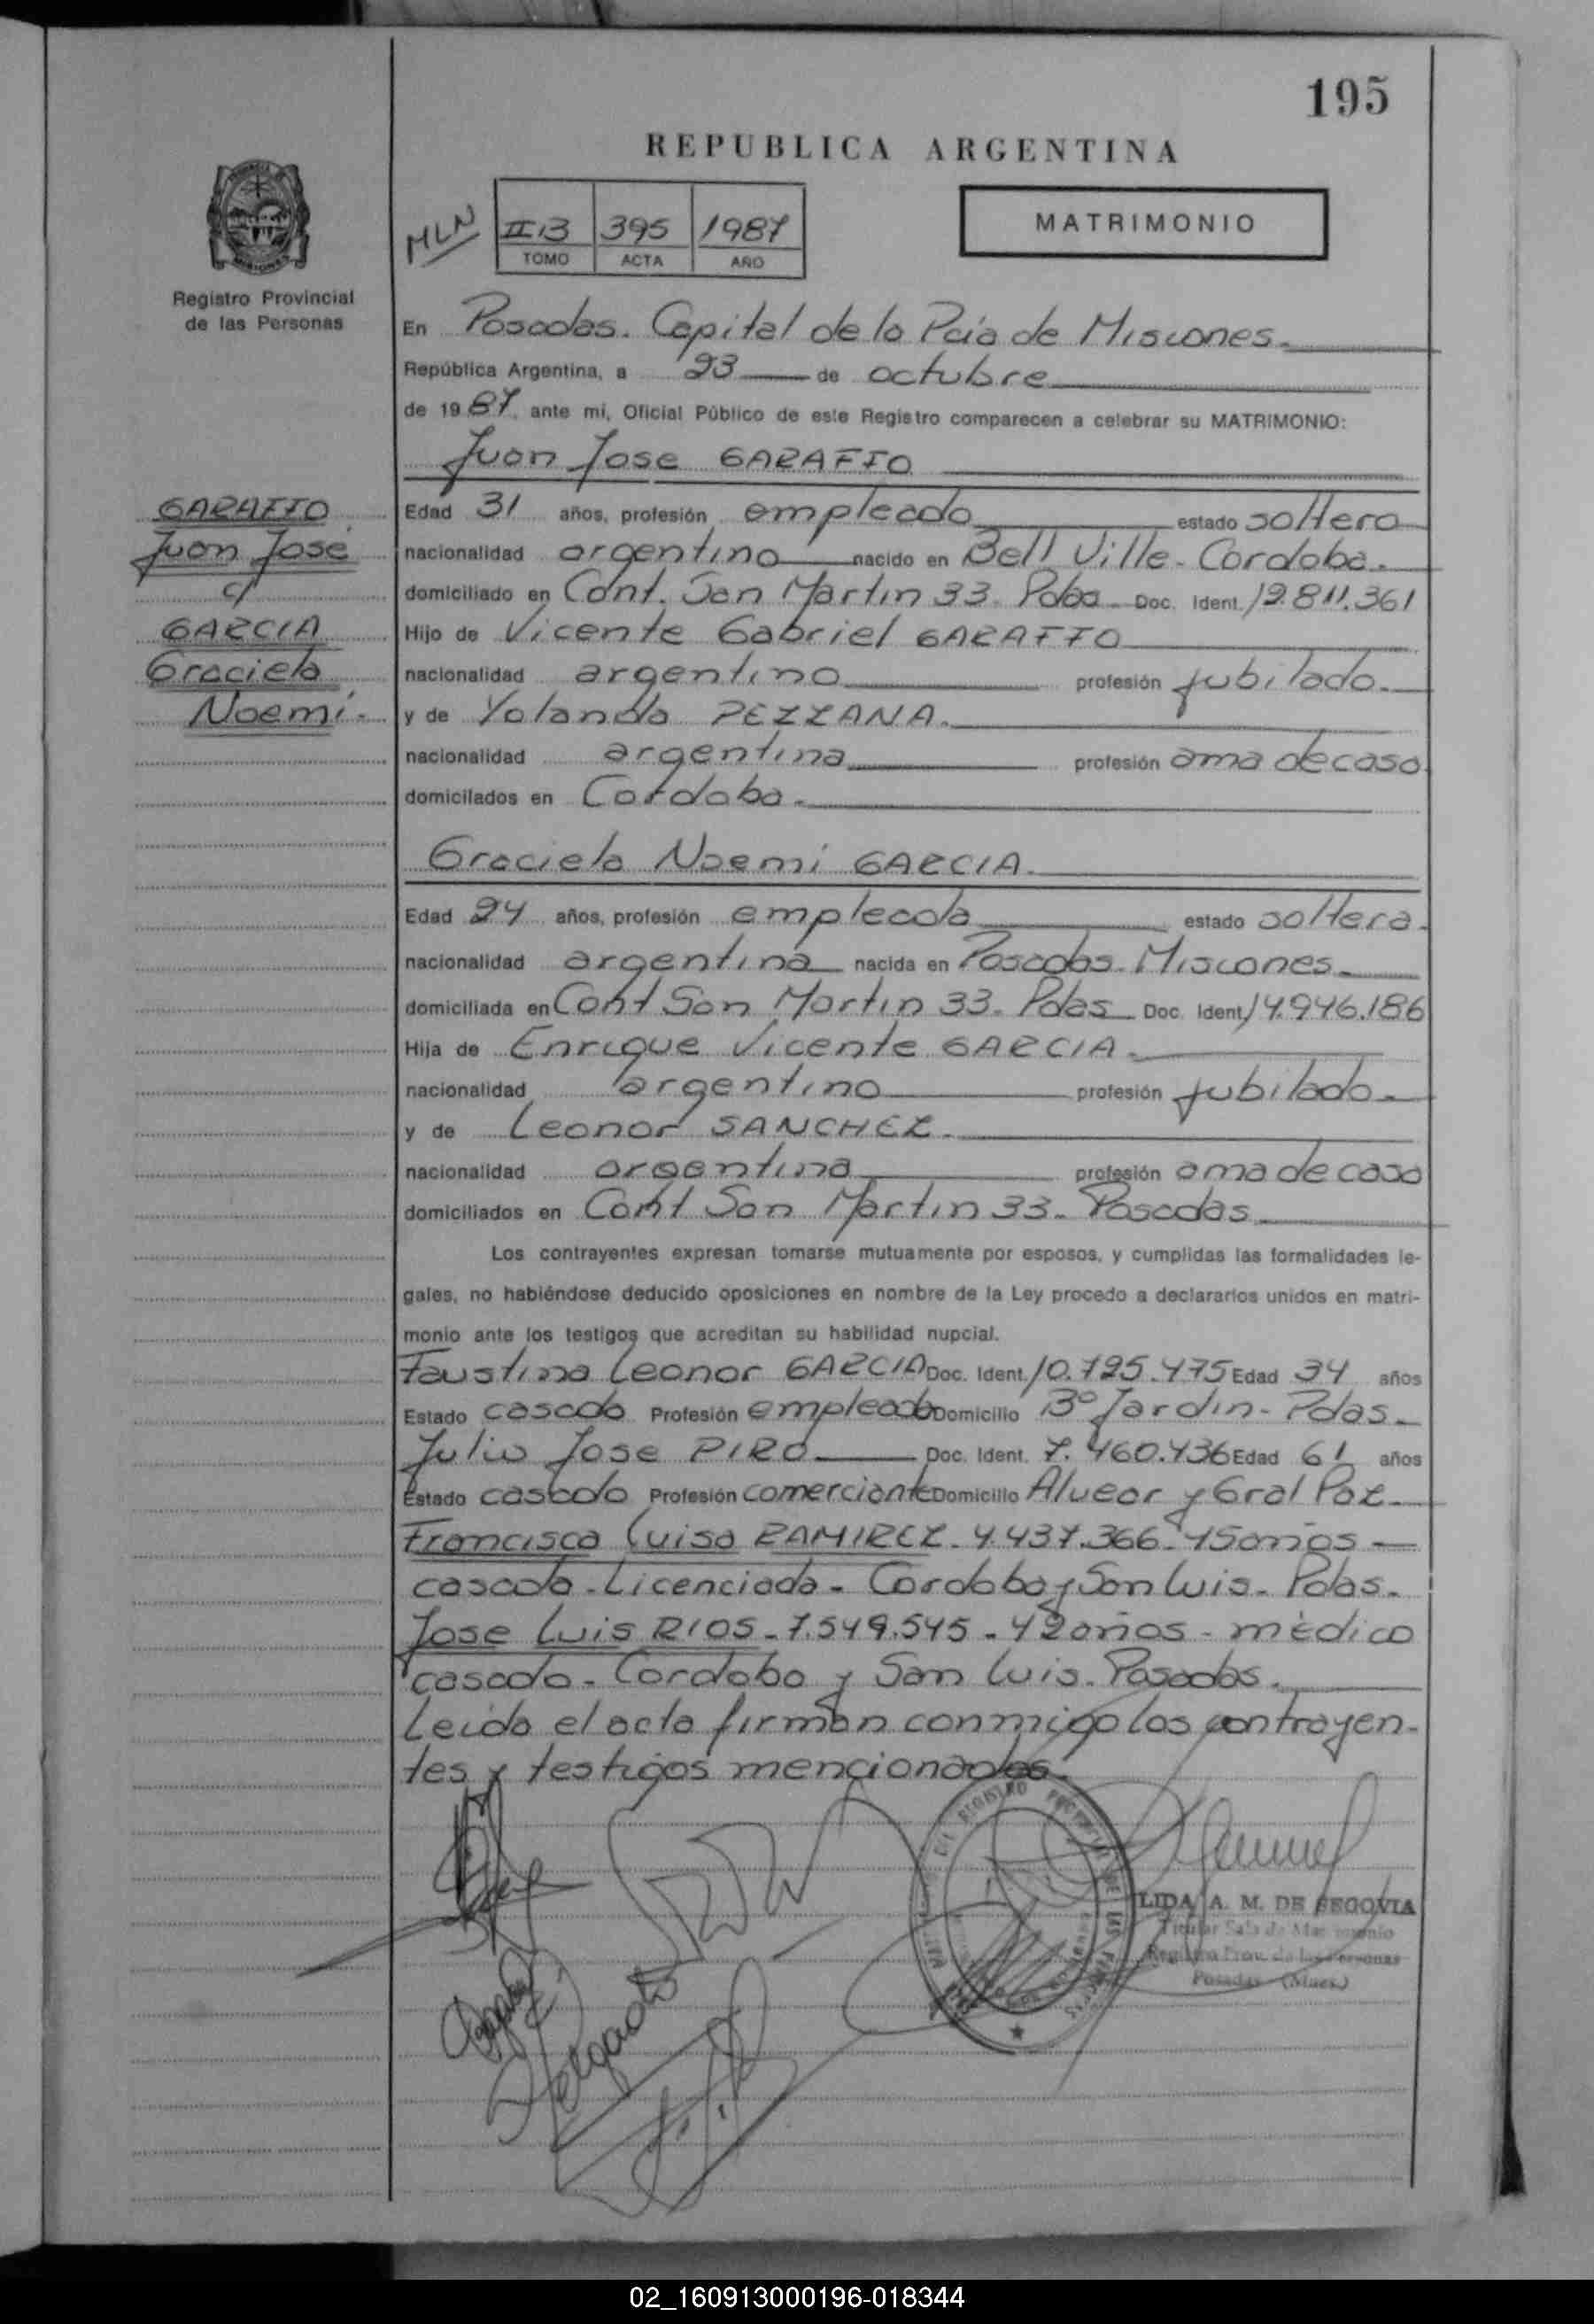 195
REPUBLICA ARGENTINA
MATRIMONIO
MLN
II B 395 1987
TOMO ACTA AÑO
Registro Provincial
de las Personas
En Posadas. Capital de la Pcia de Misiones.
República Argentina, a 23 de octubre
de 1987, ante mi, Oficial Público de este Registro comparecen a celebrar su MATRIMONIO:
Juan Jose GARAFFO
GARAFFO
Juan José
c/
GARCIA
Graciela
Noemí.
Edad 31 años, profesión empleado estado soltero
nacionalidad argentino nacido en Bell Ville - Cordoba.
domiciliado en Cont. San Martin 33. Pdas. Doc. Ident. 12.811.361
Hijo de Vicente Gabriel GARAFFO
nacionalidad argentino profesión jubilado.
y de Yolanda PEZZANA.
nacionalidad argentina profesión ama de casa
domicilados en Cordoba.
Graciela Noemi GARCIA.
Edad 24 años, profesión empleada estado soltera.
nacionalidad argentina nacida en Posadas - Misiones.
domiciliada en Cont San Martin 33. Pdas Doc. Ident. 14.946.186
Hija de Enrique Vicente GARCIA.
nacionalidad argentino profesión jubilado.
y de Leonor SANCHEZ.
nacionalidad argentina profesión ama de casa
domiciliados en Cont San Martin 33. Posadas
Los contrayentes expresan tomarse mutuamente por esposos, y cumplidas las formalidades le-
gales, no habiéndose deducido oposiciones en nombre de la Ley procedo a declararlos unidos en matri-
monio ante los testigos que acreditan su habilidad nupcial.
Faustina Leonor GARCIA Doc. Ident. 10.725.475 Edad 34 años
Estado casada Profesión empleada Domicilio Bº Jardin - Pdas.
Julio Jose PIRO Doc. Ident. 7.460.436 Edad 61 años
Estado casado Profesión comerciante Domicilio Alvear y Gral Paz.
Francisca Luisa RAMIREZ - 4.437.366 - 45 años -
casada - Licenciada - Cordoba y San Luis - Pdas.
Jose Luis RIOS - 7.549.545 - 42 años - médico
casado - Cordoba y San Luis. Posadas.
Leída el acta firman conmigo los contrayen-
tes y testigos mencionados.
LIDA A. M. DE SEGOVIA
Titular Sala de Matrimonio
Registro Prov. de las Personas
Posadas (Mnes.)
Delgado
02_160913000196-018344